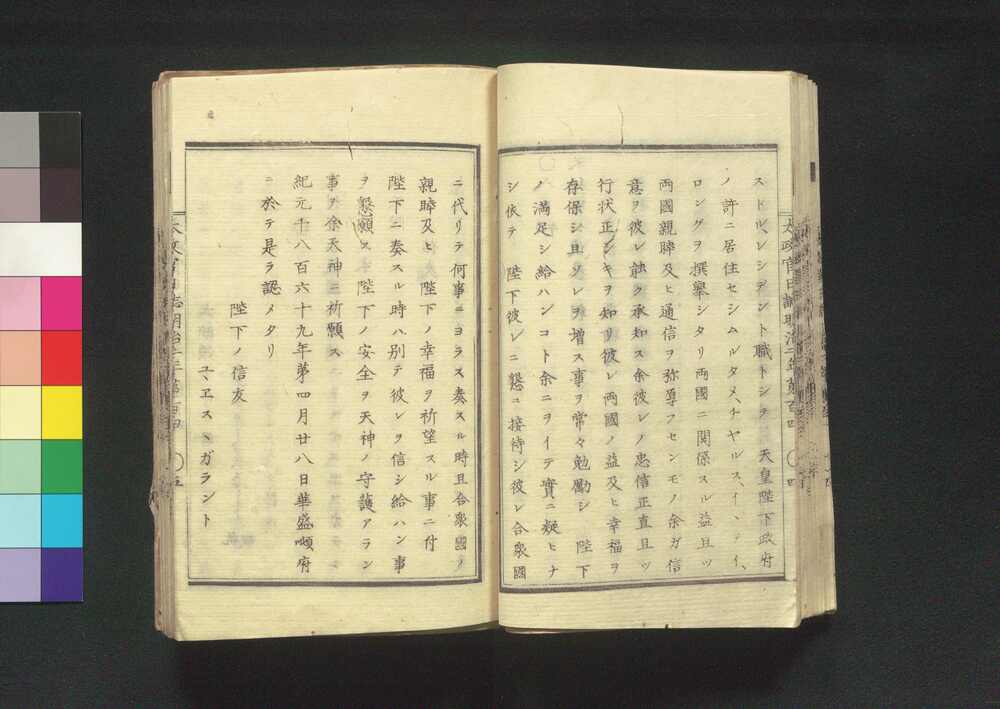 ストルレシデント職トシテ 天皇陛下政府
ノ許ニ居住セシムルタメ、チヤルス、イ、デイ、
ロングヲ撰擧シタリ両國ニ関係スル益且ツ
両國親睦及ヒ通信ヲ弥導フセンモノ余ガ信
意ヲ彼レ能ク承知ス余彼レノ忠信正直且ツ
行状正シキヲ知リ彼レ両國ノ益及ヒ幸福ヲ
存保シ且ツレヲ増ス事ヲ常々勉勵シ 陛下
ノ満足シ給ハンコト余ニヲイテ實ニ疑ヒナ
シ依テ 陛下彼レニ懇ニ接待シ彼レ合衆國
太政官日誌明治二年第百四 〇四
ニ代リテ何事ニヨラス奏スル時且合衆國ノ
親睦及ヒ陛下ノ幸福ヲ祈望スル事ニ付
陛下ニ奏スル時ハ別テ彼レヲ信シ給ハン事
ヲ懇願ス 陛下ノ安全ヲ天神ノ守護アラン
事ヲ余天神ニ祈願ス
紀元千八百六十九年第四月廿八日華盛頓府
ニ於テ是ヲ認メタリ
陛下ノ信友
ユ、エス、ガラント
太政官日誌明治二年第百四 〇五